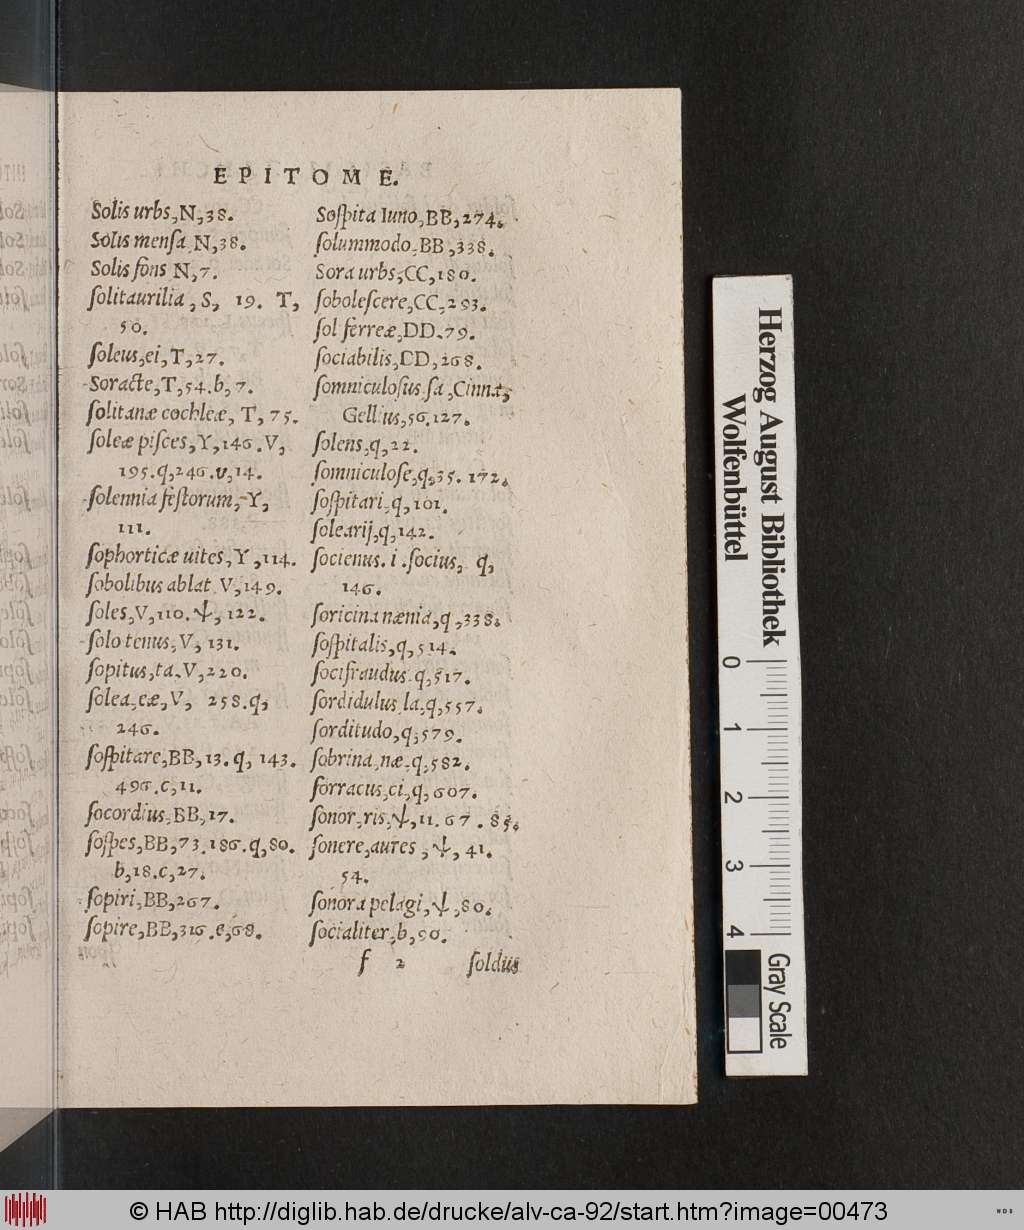 EPITOME.
Solis urbs, N, 38.
Solis mensa N, 38.
Solis fons N, 7.
ſolitaurilia, S, 19. T,
50.
ſoleus, ei, T, 27.
Soracte, T, 54. b, 7.
ſolitanæ cochleæ, T, 75.
ſoleæ piſces, Y, 146. V,
195. q, 246. v, 14.
ſolennia feſtorum, Y,
111.
ſophorticæ uites, Y, 114.
ſobolibus ablat V, 149.
ſoles, V, 110. ψ, 122.
ſolo tenus, V, 131.
ſopitus, ta. V, 220.
ſolea, eæ, V, 258. q,
246.
ſoſpitare, BB, 13. q, 143.
496. c, 11.
ſocordius, BB, 17.
ſoſpes, BB, 73. 186. q, 80.
b, 18. c, 27.
ſopiri, BB, 267.
ſopire, BB, 316. e, 68.
Soſpita Iuno, BB, 274.
ſolummodo, BB, 338.
Sora urbs, CC, 180.
ſoboleſcere, CC, 293.
ſol ferreæ, DD. 79.
ſociabilis, DD, 268.
ſomniculoſius. ſa, Cinna,
Gellius, 56. 127.
ſolens, q, 22.
ſomniculoſe, q, 35. 172.
ſoſpitari, q, 101.
ſolearij, q, 142.
ſocienus. i. ſocius, q,
146.
ſoricina nænia, q, 338.
ſoſpitalis, q, 514.
ſocifraudus. q, 517.
ſordidulus la, q, 557.
ſorditudo, q, 579.
ſobrina, næ, q, 582.
ſorracus, ci, q, 607.
ſonor, ris, ψ, 11. 67. 85.
ſonere, aures, ψ, 41.
54.
ſonora pelagi, ψ, 80.
ſocialiter, b, 90.
f 2 ſoldus
Herzog August Bibliothek
Wolfenbüttel
0 1 2 3 4
Gray Scale
© HAB http://diglib.hab.de/drucke/alv-ca-92/start.htm?image=00473